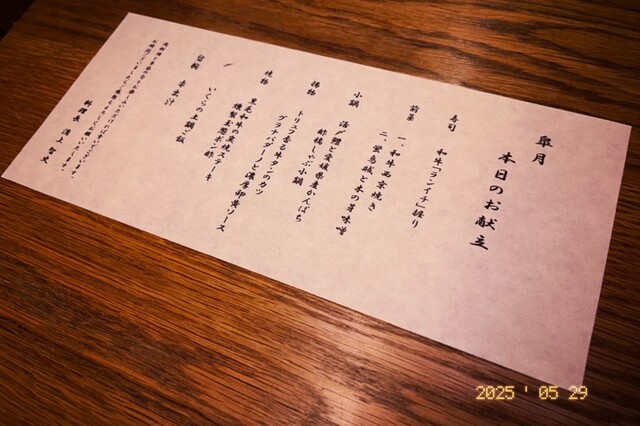 皐月
本日のお献立
寿司 和牛「ランイチ」握り
前菜 一、和牛西京焼き
二、蛍烏賊と木の芽味噌
小鍋 活〆鯛と愛媛県産かんぱち
酢橘しゃぶ小鍋
揚物 トリュフ香る牛タンカツ
グラナパダーノと濃厚卵黄ソース
焼物 黒毛和牛の炭焼ステーキ
燻製玉葱ポン酢
〆 いくらの土鍋ご飯
留椀 赤出汁
料理長 湯上 智史
2025 ' 05 29